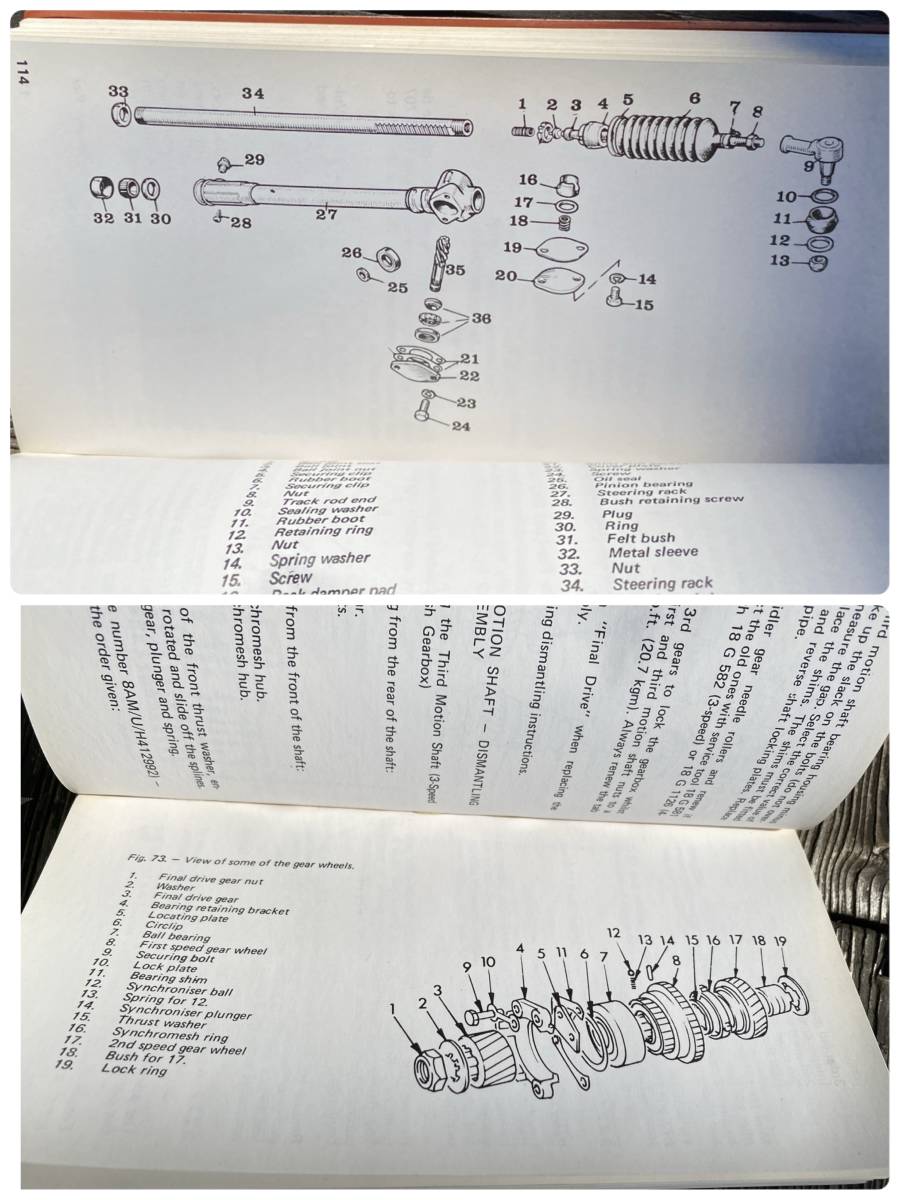 114
33
34
1
2
3
4
5
6
7
8
9
10
11
12
13
29
16
17
18
19
20
14
15
32
31
30
28
27
26
25
35
36
21
22
23
24
6. Rubber boot
7. Securing clip
8. Nut
9. Track rod end
10. Sealing washer
11. Rubber boot
12. Retaining ring
13. Nut
14. Spring washer
15. Screw
damper pad
Spring washer
Screw
25. Oil seal
26. Pinion bearing
27. Steering rack
28. Bush retaining screw
29. Plug
30. Ring
31. Felt bush
32. Metal sleeve
33. Nut
34. Steering rack
ke up
motion shaft bearing housing
measure the gap.
lace the slack on the bolts (do not
and the shims. Select the shims correct
pipe. reverse shaft locking plates. Replace
idler gear needle rollers and renew
t the old ones with service tool 18 G
h 18 G 582 (3-speed) or 18 G 1126 (4-
3rd gears to lock the gearbox whilst
rst and third motion shaft nuts to a
.ft. (20.7 kgm). Always renew the tab
"Final Drive" when replacing the
ply.
ing dismantling instructions.
OTION SHAFT – DISMANTLING
EMBLY
the Third Motion Shaft (3-Speed
h Gearbox)
g from the rear of the shaft:
or.
ts.
from the front of the shaft:
chromesh hub.
chromesh hub.
of the front thrust washer, en-
rotated and slide off the splines.
gear, plunger and spring.
e number 8AM/U/H412992) –
the order given:
Fig. 73. – View of some of the gear wheels.
1. Final drive gear nut
2. Washer
3. Final drive gear
4. Bearing retaining bracket
5. Locating plate
6. Circlip
7. Ball bearing
8. First speed gear wheel
9. Securing bolt
10. Lock plate
11. Bearing shim
12. Synchroniser ball
13. Spring for 12.
14. Synchroniser plunger
15. Thrust washer
16. Synchromesh ring
17. 2nd speed gear wheel
18. Bush for 17.
19. Lock ring
1
2
3
9
10
4
5
11
6
7
12
13
14
8
15
16
17
18
19